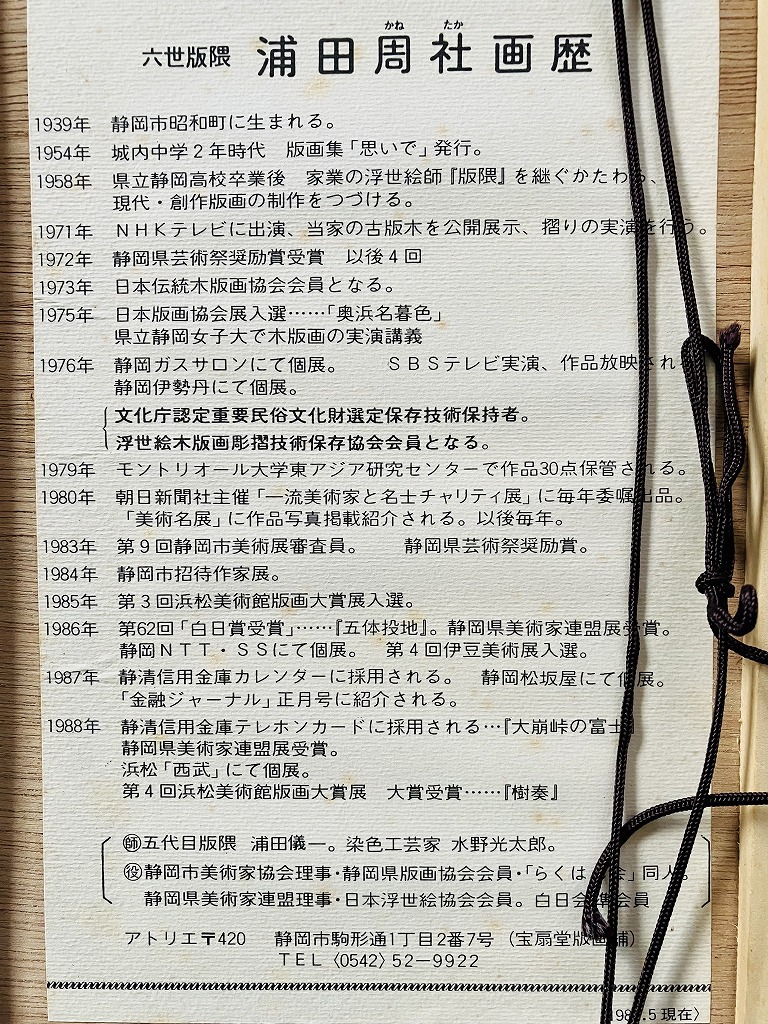 かね たか
六世版隈 浦田周社画歴
1939年 静岡市昭和町に生まれる。
1954年 城内中学2年時代 版画集「思いで」発行。
1958年 県立静岡高校卒業後 家業の浮世絵師『版隈』を継ぐかたわら、
現代・創作版画の制作をつづける。
1971年 NHKテレビに出演、当家の古版木を公開展示、摺りの実演を行う。
1972年 静岡県芸術祭奨励賞受賞 以後4回
1973年 日本伝統木版画協会会員となる。
1975年 日本版画協会展入選……「奥浜名暮色」
県立静岡女子大で木版画の実演講義
1976年 静岡ガスサロンにて個展。 SBSテレビ実演、作品放映され
静岡伊勢丹にて個展。
文化庁認定重要民俗文化財選定保存技術保持者。
浮世絵木版画彫摺技術保存協会会員となる。
1979年 モントリオール大学東アジア研究センターで作品30点保管される。
1980年 朝日新聞社主催「一流美術家と名士チャリティ展」に毎年委嘱出品。
「美術名展」に作品写真掲載紹介される。以後毎年。
1983年 第9回静岡市美術展審査員。 静岡県芸術祭奨励賞。
1984年 静岡市招待作家展。
1985年 第3回浜松美術館版画大賞展入選。
1986年 第62回「白日賞受賞」……『五体投地』。静岡県美術家連盟展受賞。
静岡NTT・SSにて個展。 第4回伊豆美術展入選。
1987年 静清信用金庫カレンダーに採用される。 静岡松坂屋にて個展。
「金融ジャーナル」正月号に紹介される。
1988年 静清信用金庫テレホンカードに採用される…『大崩峠の富士』
静岡県美術家連盟展受賞。
浜松「西武」にて個展。
第4回浜松美術館版画大賞展 大賞受賞……『樹奏』
㊙師五代目版隈 浦田儀一。染色工芸家 水野光太郎。
役静岡市美術家協会理事・静岡県版画協会会員・「らくは 会」同人。
静岡県美術家連盟理事・日本浮世絵協会会員。白日会準会員
アトリエ〒420 静岡市駒形通1丁目2番7号(宝扇堂版画舗)
TEL〈0542〉52-9922
.5現在〉